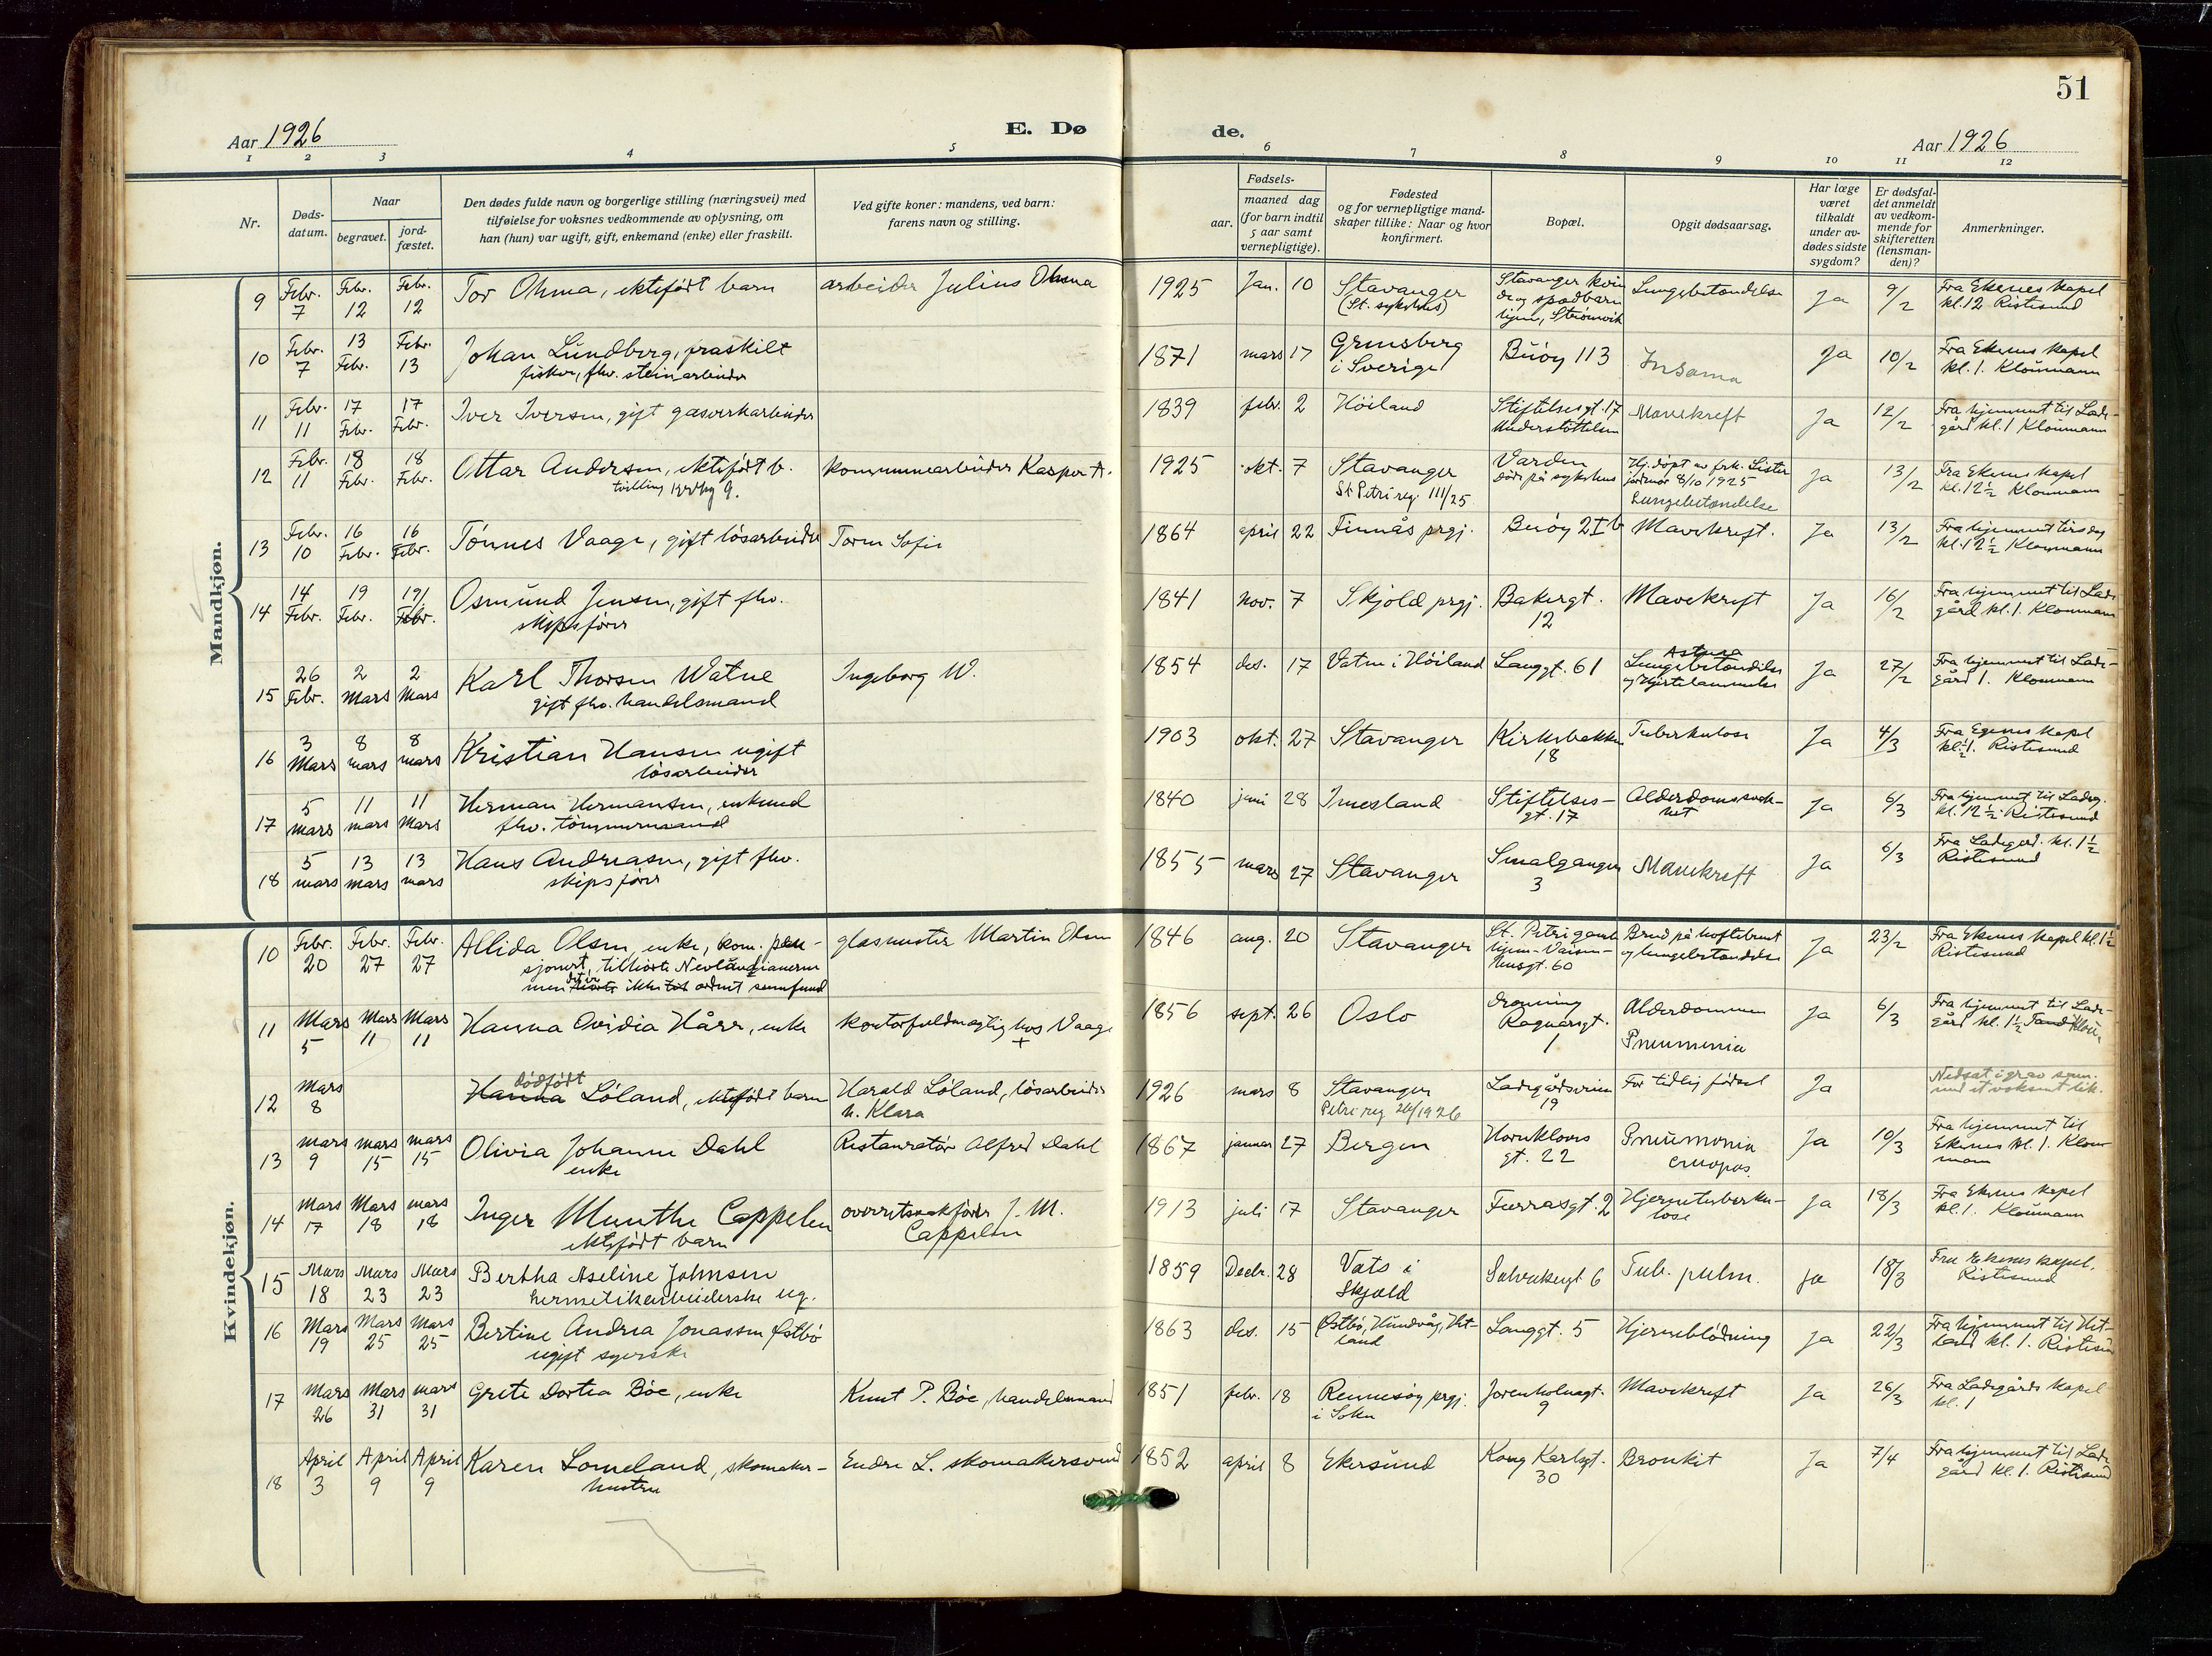 51
Aar 1926
E. Dø
de.
Aar 1926
1 2 3 4 5 6 7 8 9 10 11 12
Nr.
Døds-
datum.
Naar
begravet.
jord-
fæstet.
Den dødes fulde navn og borgerlige stilling (næringsvei) med
tilføielse for voksnes vedkommende av oplysning, om
han (hun) var ugift, gift, enkemand (enke) eller fraskilt.
Ved gifte koner: mandens, ved barn:
farens navn og stilling.
Fødsels-
aar.
maaned dag
(for barn indtil
5 aar samt
vernepligtige).
Fødested
og for vernepligtige mand-
skaper tillike: Naar og hvor
konfirmert.
Bopæl.
Opgit dødsaarsag.
Har læge
været
tilkaldt
under av-
dødes sidste
sygdom?
Er dødsfal-
det anmeldt
av vedkom-
mende for
skifteretten
(lensman-
den)?
Anmerkninger.
Mandkjøn.
9 Febr. 7 Febr. 12 Febr. 12 Tor Ohma, ektefødt barn arbeider Julius Ohma 1925 Jan. 10 Stavanger
(St. sykehus) Stavanger kvin
de og spædbarn
hjem, Strømvik Lungebetændelse Ja 9/2 Fra Ekenes kapel
kl. 12 Ristesund
10 Febr. 7 13 Febr. Febr. 13 Johan Lundberg, fraskilt
fisker, fhv. steinarbeider 1871 mars 17 Grensberg
i Sverige Buøy 113 Insania Ja 10/2 Fra Ekenes kapel
kl. 1. Kloumann
11 Febr. 11 17 Febr. 17 Febr. Iver Iversen, gift gasverkarbeider 1839 febr. 2 Høiland Stiftelsesgt. 17
Understøttelsen Mavekreft Ja 12/2 Fra hjemmet til Lade-
gård kl. 1 Kloumann
12 Febr. 11 18 Febr. 18 Febr. Ottar Andersen, ektefødt b.
tvilling kommunearbeider Kasper A. 1925 okt. 7 Stavanger
St. Petri reg. 111/25 Varden
døde på sykehus Hj. døpt av frk. Lister
jordmor 8/10 1925
Lungebetændelse Ja 13/2 Fra Ekenes kapel
kl. 12½ Kloumann
13 Febr. 10 16 Febr. 16 Febr. Tønnes Vaage, gift løsarbeider Toren Sofie 1864 april 22 Finnås prgj. Buøy 2I b Mavekreft. Ja 13/2 Fra hjemmet tirsdag
kl. 12½ Kloumann
14 14 Febr. 19 Febr. 19/ Febr. Osmund Jensen, gift fhv.
skipsfører 1841 nov. 7 Skjold prgj. Bakergt.
12 Mavekreft Ja 16/2 Fra hjemmet til Lade
gård kl. 1. Kloumann
15 26 Febr. 2 Mars 2 Mars Karl Thorsen Watne
gift fhv. handelsmand Ingeborg W. 1854 des. 17 Vatne i Høiland Langgt. 61 Astma
Lungebetændelse
og Hjertelammelse Ja 27/2 Fra hjemmet til Lade-
gård 1. Kloumann
16 3 Mars 8 mars 8 mars Kristian Hansen ugift
løsarbeider 1903 okt. 27 Stavanger Kirkebakken
18 Tuberkulose Ja 4/3 Fra Egenes kapel
kl. ½1. Ristesund
17 5 mars 11 mars 11 Mars Herman Hermansen, enkemd
fhv. tømmermaand 1840 juni 28 Imesland Stiftelses-
gt. 17 Alderdomssvak-
het Ja 6/3 Fra hjemmet til Ladeg.
kl. 12½ Ristesund
18 5 mars 13 mars 13 mars Hans Andreasen, gift fhv.
skipsfører 1855 mars 27 Stavanger Smalgangen
3 Mavekreft Ja 6/3 Fra Ladegård. kl. 1½
Ristesund
Kvindekjøn.
10 Febr. 20 Febr. 27 Febr. 27 Allida Olsen, enke, kom. pen-
sjonert, tilhørte Nevlandianerne
men det er ikke ordnet samfund glasmester Martin Olsen 1846 aug. 20 Stavanger St. Petri gamle
hjem - Vaisen-
husgt. 60 Brud på hoftebenet
og lungebetændelse Ja 23/2 Fra Ekenes kapel kl. 1½
Ristesund
11 Mars 5 Mars 11 Mars 11 Hanna Ovidia Hårr, enke kontorfuldmægtig hos Vaage
+ 1856 sept. 26 Oslo Dronning
Ragnasgt.
1 Alderdommen
Pneumonia Ja 6/3 Fra hjemmet til Lade-
gård kl. 1½
12 Mars 8 dødfødt
Hanna Løland, ektefødt barn Harald Løland, løsarbeider
h. Klara 1926 mars 8 Stavanger
Petri reg 26/1926 Ladegårdsveien
19 For tidlig fødsel Ja Nedsat i grav sam.
med et voksent lik.
13 mars 9 mars 15 mars 15 Olivia Johanne Dahl
enke Restauratør Alfred Dahl 1867 januar 27 Bergen Hornklovs
gt. 22 Pneumonia
cruopos Ja 10/3 Fra hjemmet til
Ekenes kl. 1. Klou-
mann
14 Mars 17 Mars 18 mars 18 Inger Munthe Cappelen
ektefødt barn overretssakfører J. M.
Cappelen 1913 juli 17 Stavanger Furrasgt. 2 Hjernetuberku-
lose Ja 18/3 Fra Ekenes kapel
kl. 1. Kloumann
15 Mars 18 Mars 23 Mars 23 Bertha Aseline Johnsen
hermetikarbeiderske ug. 1859 Decbr. 28 Vats i
Skjold Solvakergt 6 Tub. pulm. ja 18/3 Fra Ekenes kapel.
Ristesund
16 Mars 19 Mars 25 Mars 25 Bertine Andrea Jonassen Østbø
ugift syerske 1863 des. 15 Østbø, Hundvåg, Het-
land Langgt. 5 Hjerneblødning Ja 22/3 Fra hjemmet til Het-
land kl. 1. Ristesund
17 Mars 26 Mars 31 mars 31 Grete Dortea Bøe, enke Knut P. Bøe, handelsmand 1851 febr. 18 Rennesøy prgj.
i Sokn Jorenholmgt.
9 Mavekreft Ja 26/3 Fra Ladegårds kapel
kl. 1
18 April 3 April 9 April 9 Karen Lomeland, skomaker-
hustru Endre L. skomakersvend 1852 april 8 Ekersund Kong Karlsgt.
30 Bronkit Ja 7/4 Fra hjemmet til Lade
gård kl. 1. Ristesund